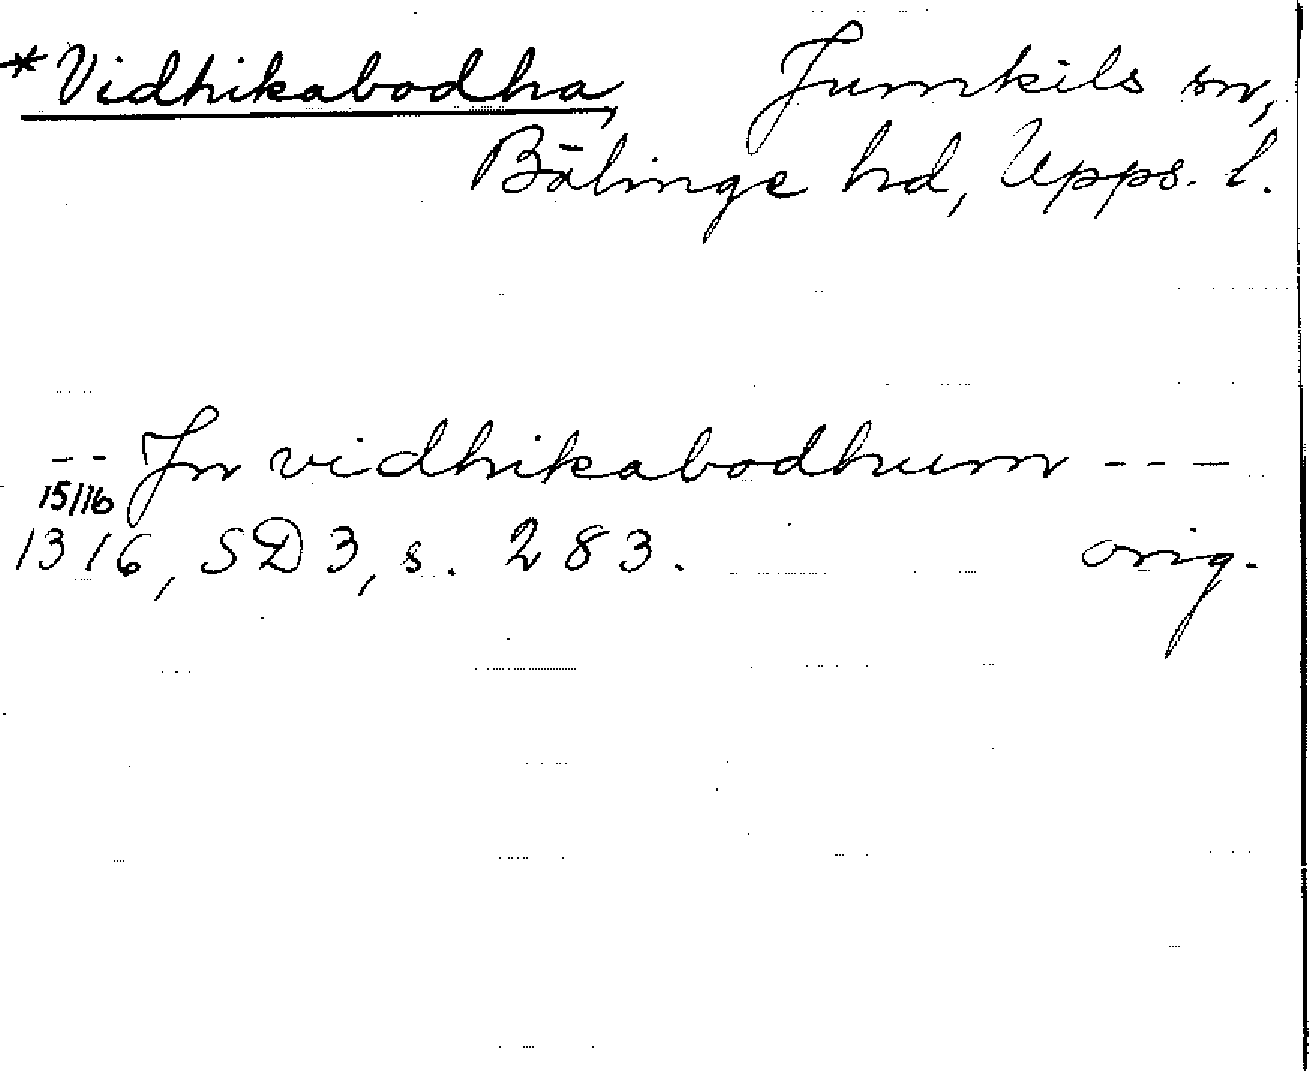 *Vidhikabodha, Jumkils sn,
Bälinge hd, Upps. l.
-- Jn vidhikabodhum ---
15/16
1316, SD3, s. 283. orig.